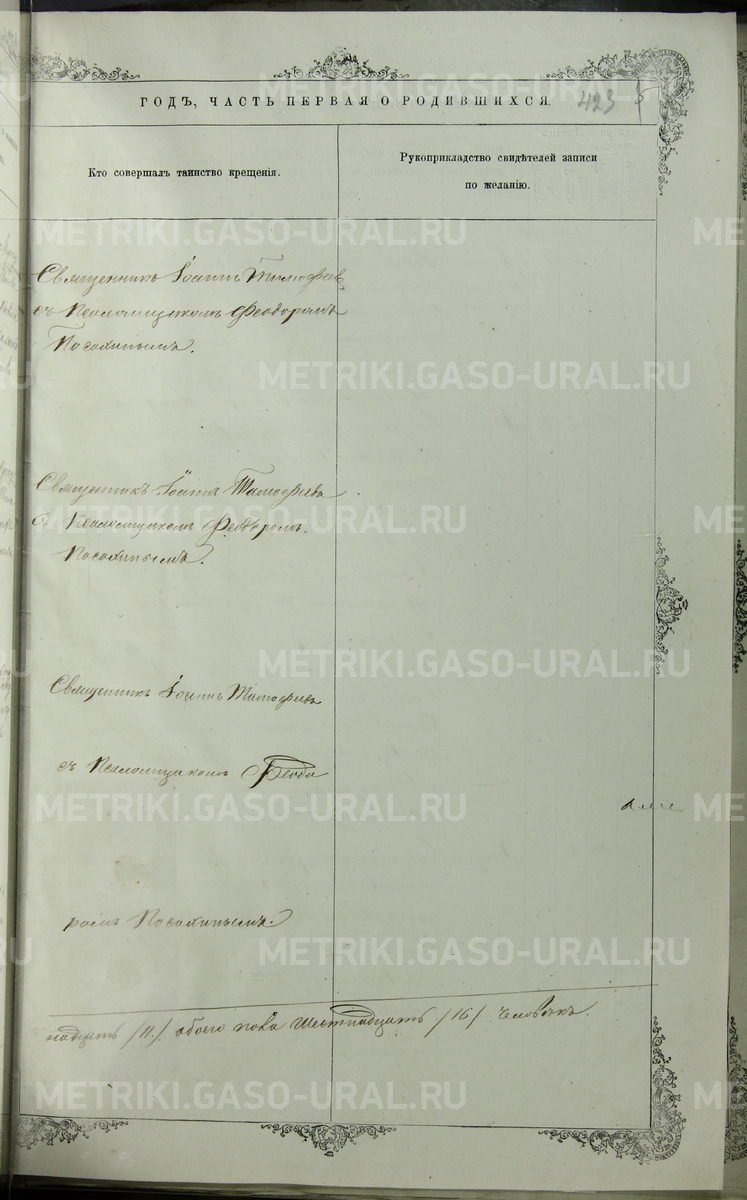 ГОДЪ, ЧАСТЬ ПЕРВАЯ О РОДИВШИХСЯ.
423
Кто совершалъ таинство крещенія.
Рукоприкладство свидѣтелей записи
по желанію.
Священникъ Іоаннъ Тимофеев
съ Псаломщикомъ Феодоромъ
Посохинымъ.
Священникъ Іоаннъ Тимофеевъ
съ Псаломщикомъ Феодоромъ
Посохинымъ.
Священникъ Іоаннъ Тимофеевъ
съ Псаломщикомъ Феодо
ромъ Посохинымъ.
надцать /11./ обоего пола Шестнадцать /16/ Человѣкъ.
METRIKI.GASO-URAL.RU